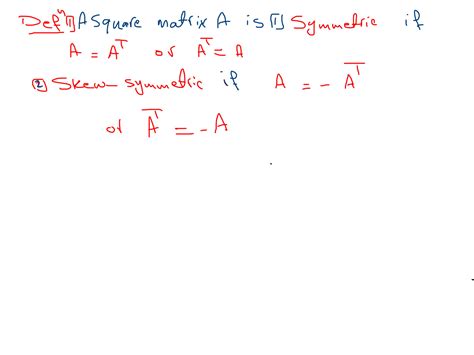 Defⁿ 1] A Square matrix A is [1] Symmetric if
A = Aᵀ or Aᵀ = A
② Skew symmetric if A = - Aᵀ
or Aᵀ = - A